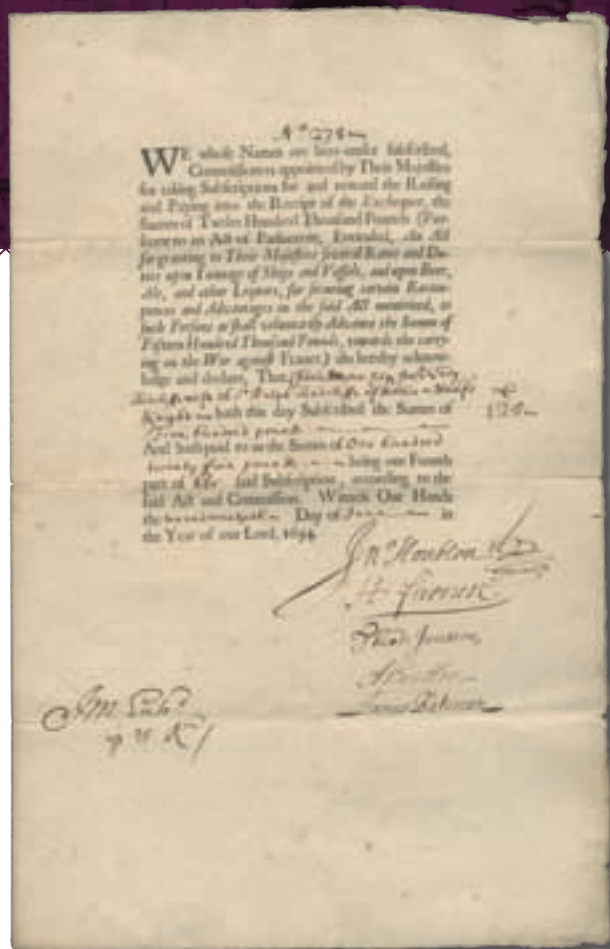 No 278
WE whose Names are here-under subscribed,
Commissioners appointed by Their Majesties
for taking Subscriptions for and toward the Raising
and Paying into the Receipt of the Exchequer, the
Summ of Twelve Hundred Thousand Pounds (Pur-
suant to an Act of Parliament, Entituled, An Act
for granting to Their Majesties several Rates and Du-
ties upon Tunnage of Ships and Vessels, and upon Beer,
Ale, and other Liquors, for securing certain Recom-
pences and Advantages in the said Act mentioned, to
such Persons as shall voluntarily Advance the Summ of
Fifteen Hundred Thousand Pounds, towards the carry-
ing on the War against France,) do hereby acknow-
ledge and declare, That
wife of Sr
Knight hath this day Subscribed the Summ of
Five hundred pounds
And hath paid to us the Summ of One hundred
twenty five pounds being one Fourth
part of her said Subscription, according to the
said Act and Commission. Witness Our Hands
the Day of June in
the Year of our Lord, 1694
125
Jno Houblon
H: Furnese
Theod: Janssen
James Bateman